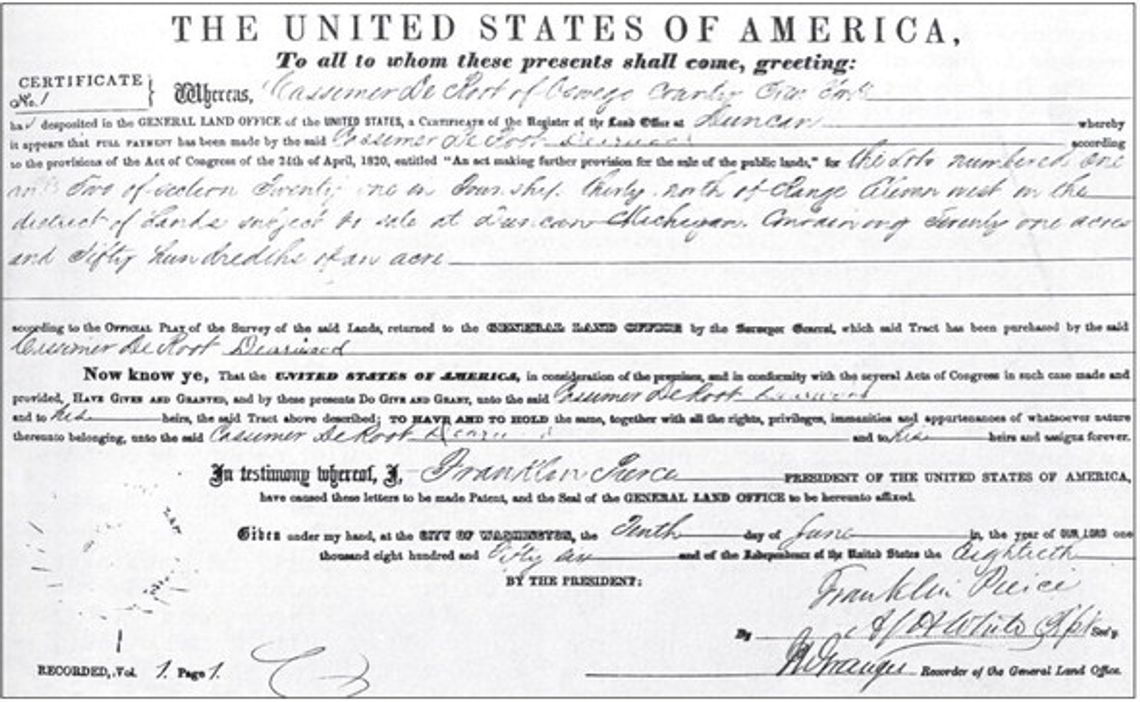 THE UNITED STATES OF AMERICA,
To all to whom these presents shall come, greeting:
CERTIFICATE
No. 1
Whereas, Cassimer De Root of Oswego County New York
ha deposited in the GENERAL LAND OFFICE of the UNITED STATES, a Certificate of the Register of the Land Office at Duncan whereby
it appears that FULL PAYMENT has been made by the said Cassimer De Root according
to the provisions of the Act of Congress of the 24th of April, 1820, entitled "An act making further provision for the sale of the public lands," for the Lots numbered one
and Two of section Twenty one in Township thirty north of Range Eleven west in the
district of Lands subject to sale at Duncan Michigan Containing Twenty one acres
and fifty hundredths of an acre
according to the OFFICIAL PLAT of the Survey of the said Lands, returned to the GENERAL LAND OFFICE by the Surveyor General, which said Tract has been purchased by the said
Cassimer De Root
Now know ye, That the UNITED STATES OF AMERICA, in consideration of the premises, and in conformity with the several Acts of Congress in such case made and
provided, HAVE GIVEN AND GRANTED, and by these presents DO GIVE AND GRANT, unto the said Cassimer De Root
and to his heirs, the said Tract above described; TO HAVE AND TO HOLD the same, together with all the rights, privileges, immunities and appurtenances of whatsoever nature
thereunto belonging, unto the said Cassimer De Root and to his heirs and assigns forever.
In testimony whereof, I, Franklin Pierce PRESIDENT OF THE UNITED STATES OF AMERICA,
have caused these letters to be made Patent, and the Seal of the GENERAL LAND OFFICE to be hereunto affixed.
Given under my hand, at the CITY OF WASHINGTON, the Tenth day of June in the year of OUR LORD one
thousand eight hundred and fifty six and of the Independence of the United States the Eightieth
BY THE PRESIDENT;
Franklin Pierce
By Sec'y.
RECORDED, Vol. 1 Page 1.
Recorder of the General Land Office.